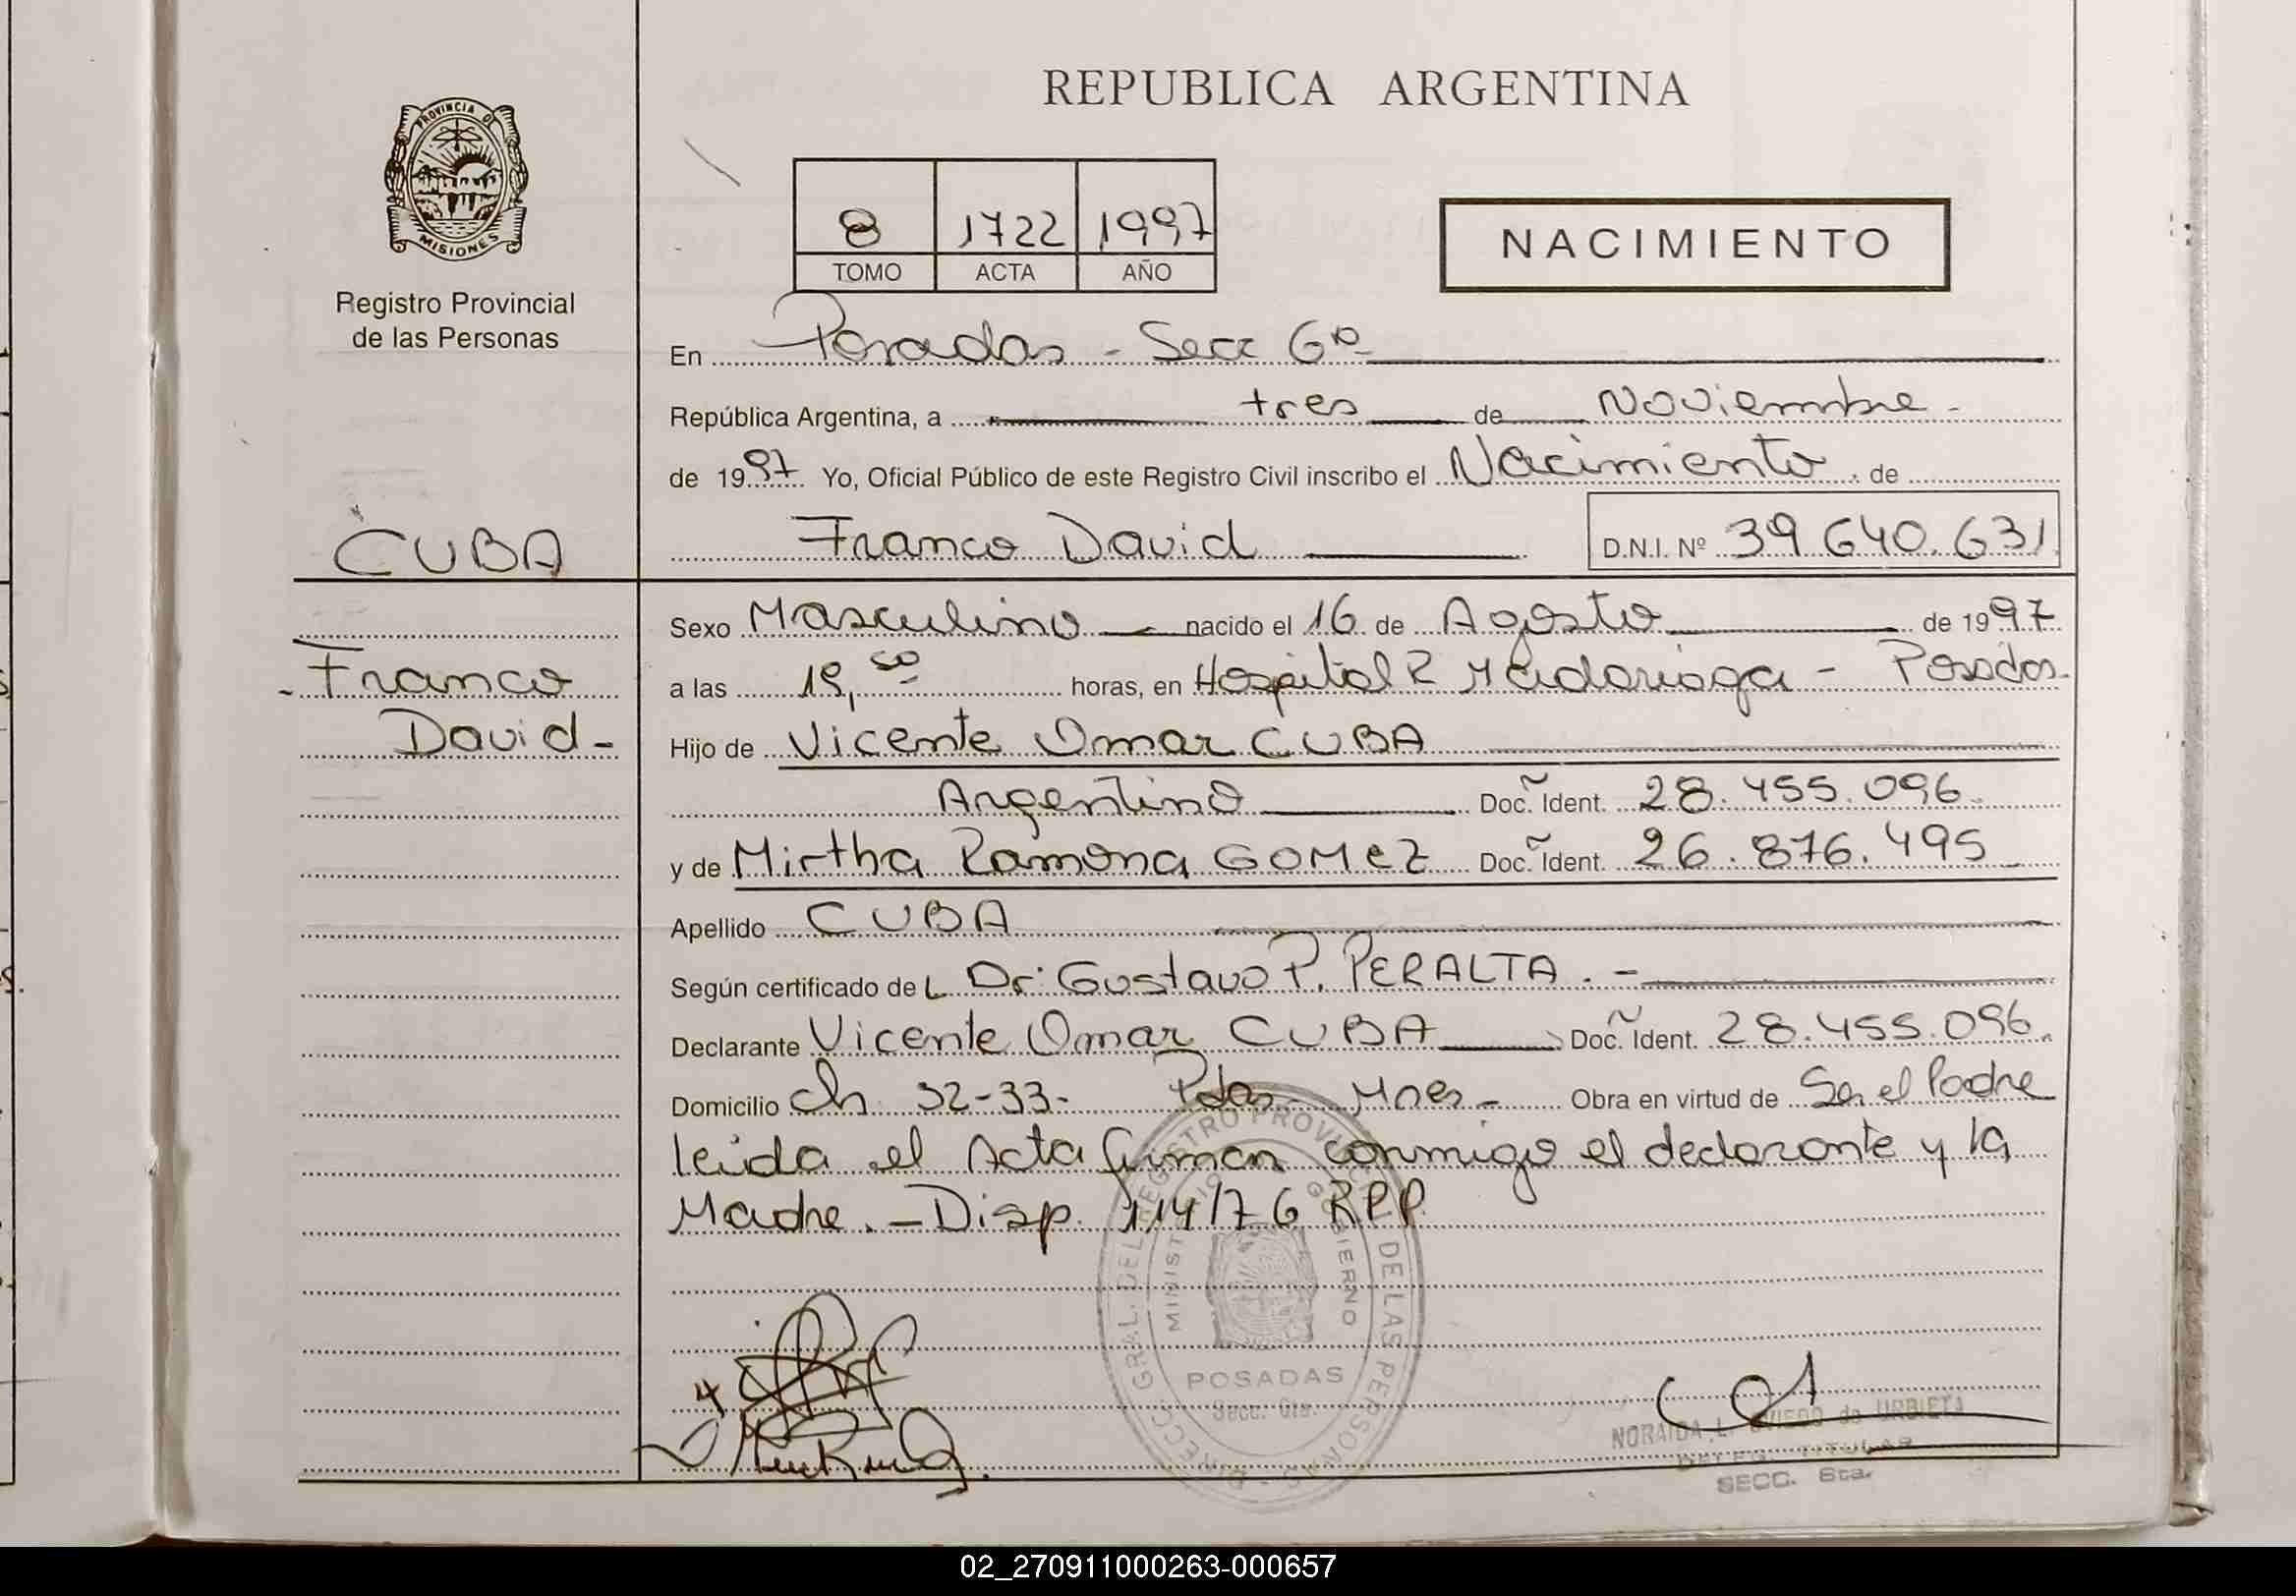 REPUBLICA ARGENTINA
PROVINCIA DE
MISIONES
Registro Provincial
de las Personas
8 1722 1997
TOMO ACTA AÑO
NACIMIENTO
En Posadas - Secc 6ta
República Argentina, a tres de Noviembre -
de 1997 Yo, Oficial Público de este Registro Civil inscribo el Nacimiento de
CUBA
Franco David
D.N.I. Nº 39.640.631
Franco
David -
Sexo Masculino nacido el 16 de Agosto de 1997
a las 19,50 horas, en Hospital R Madariaga - Posadas-
Hijo de Vicente Omar CUBA
Argentino Doc. Ident. 28.455.096
y de Mirtha Ramona GOMEZ Doc. Ident. 26.876.495
Apellido CUBA
Según certificado del Dr: Gustavo P. PERALTA . -
Declarante Vicente Omar CUBA Doc. Ident. 28.455.096.
Domicilio Ch 32-33- Pdas- Mnes - Obra en virtud de Ser el Padre
leída el Acta firman conmigo el declarante y la
Madre. - Disp. 114/76 RPP
DIRECC. GRAL. DEL REGISTRO PROVINCIAL DE LAS PERSONAS
MINISTERIO DE GOBIERNO
POSADAS
Secc. 6ta.
NORAIDA L. OVIEDO de URBIETA
DELEG. TITULAR
SECC. 6ta.
02_270911000263-000657